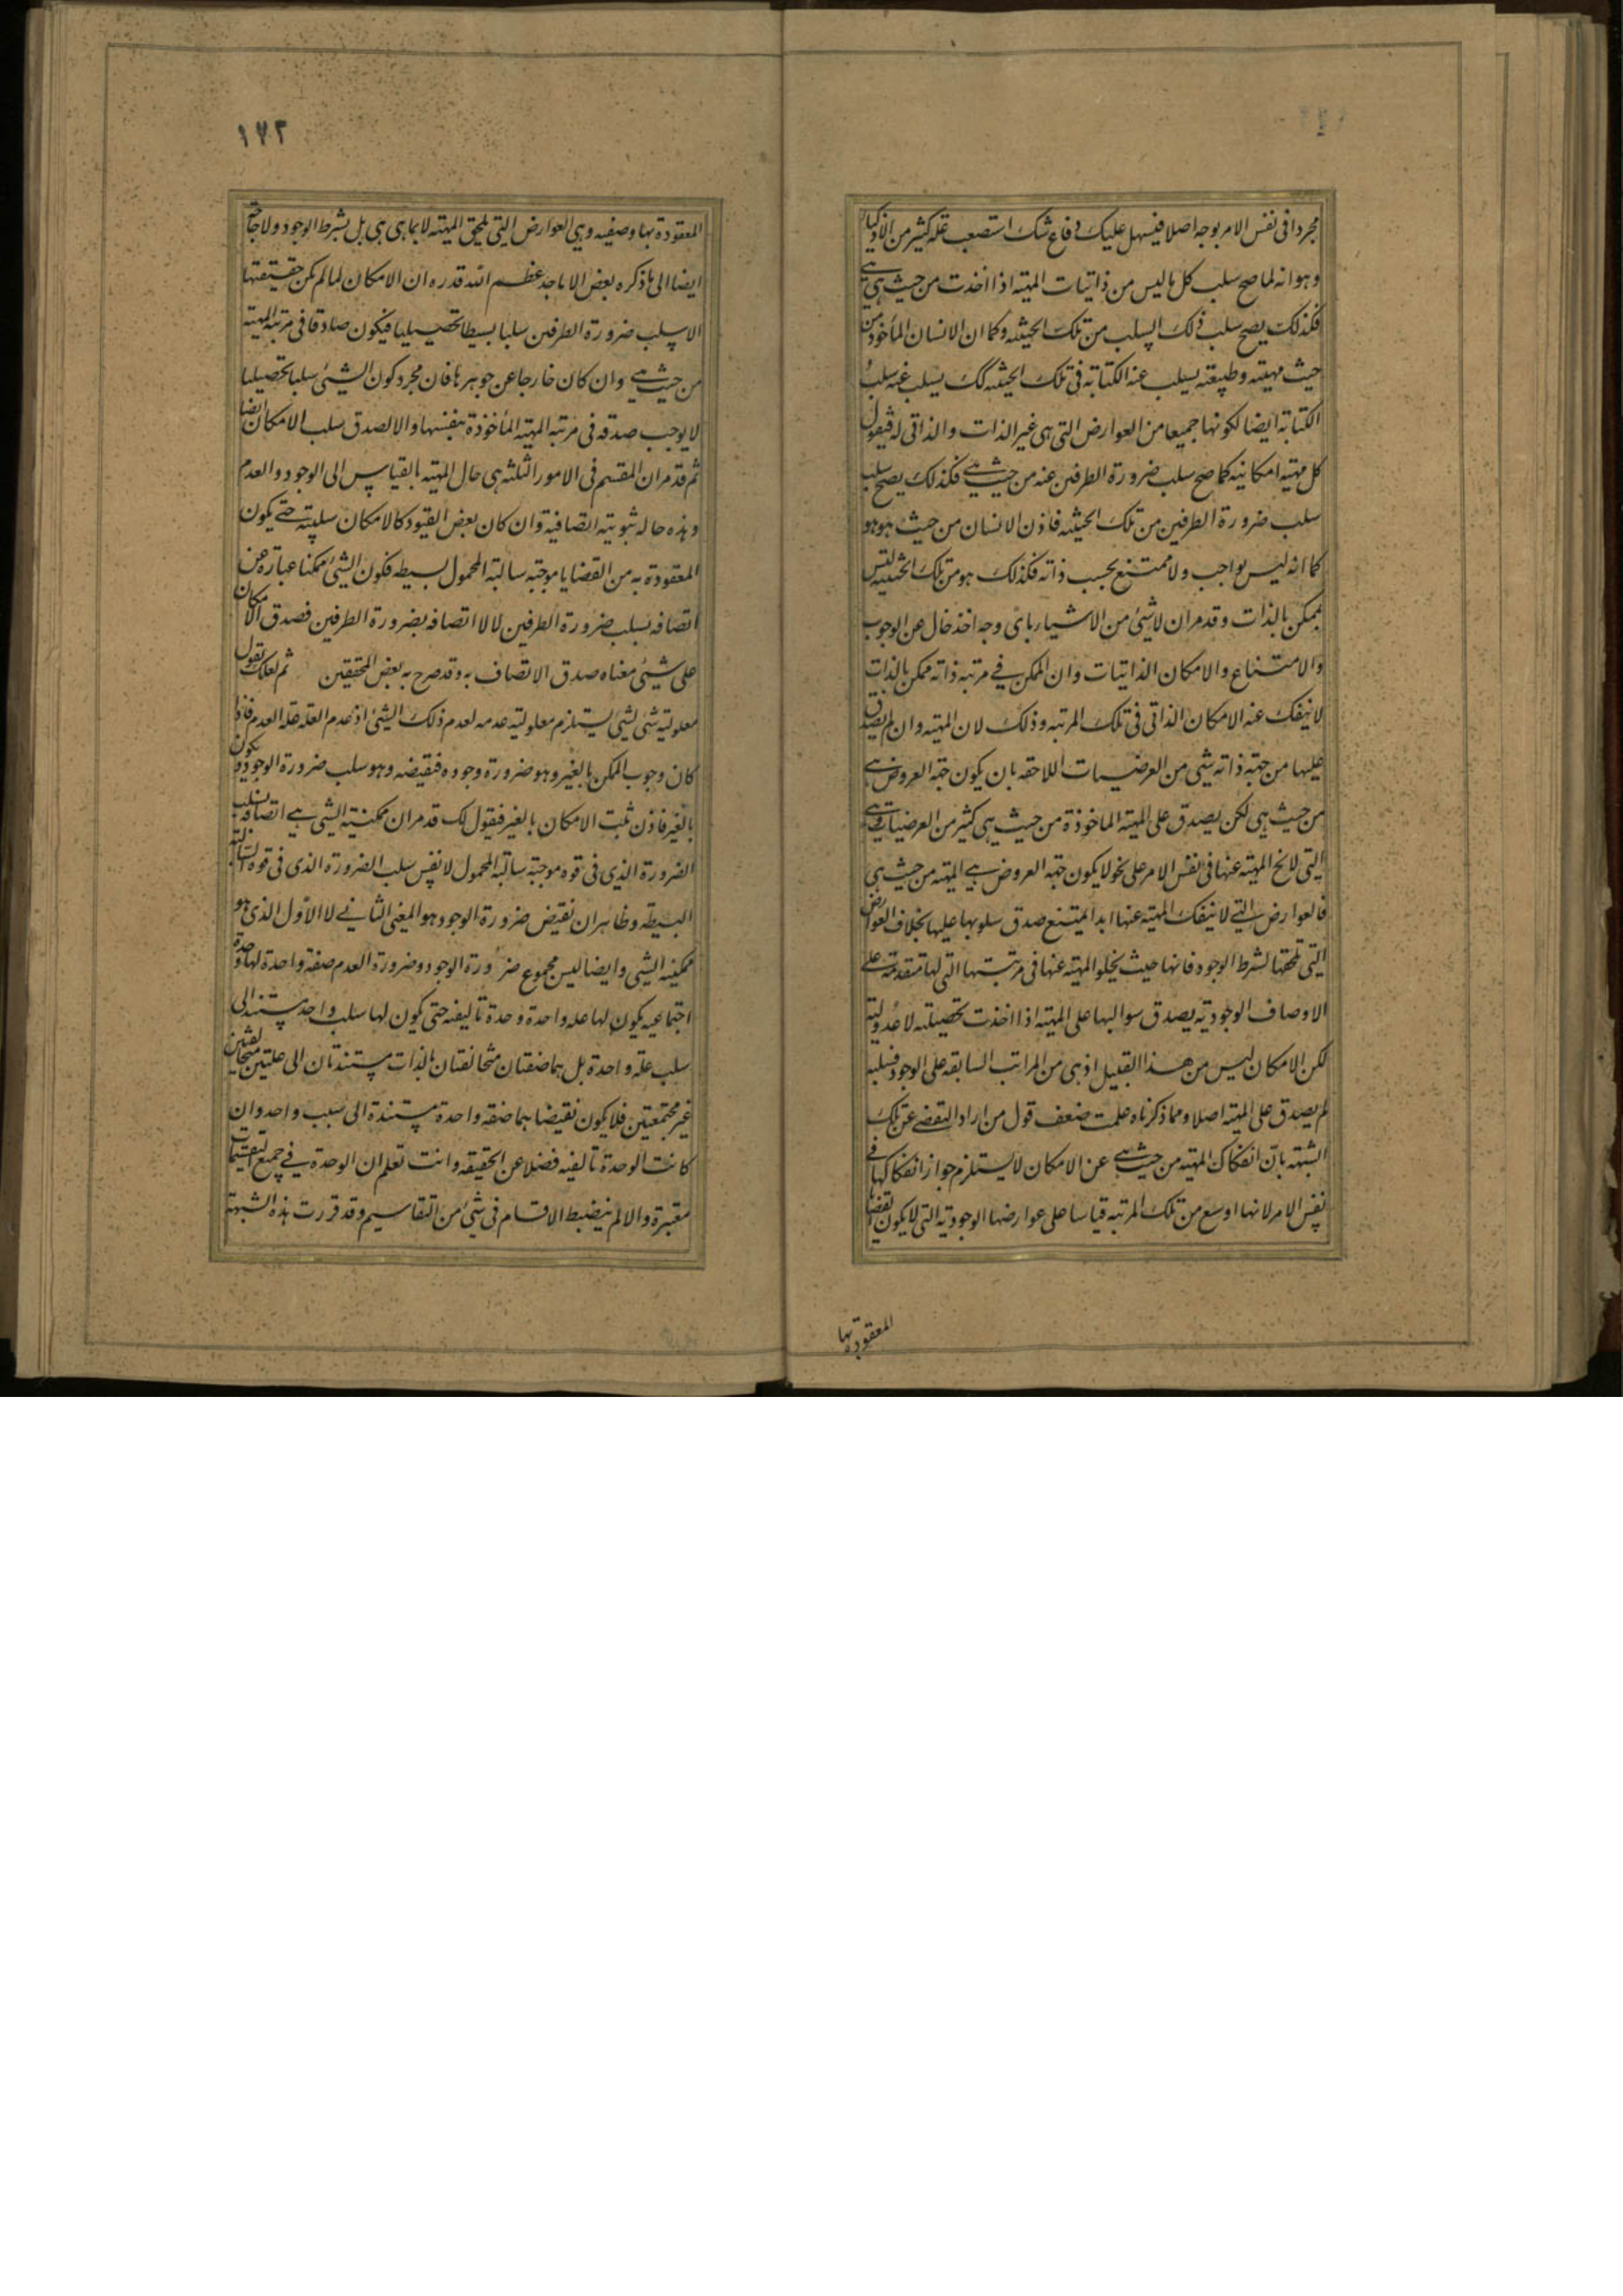 مجردا فى نفس الامر بوجه اصلا فيسهل عليك دفاع شك استصعب حله كثير من الاذكياء
وهو انه لما صح سلب كل ما ليس من ذاتيات المهية اذا اخذت من حيث هى هى
فكذلك يصح سلب ذلك السلب من تلك الحيثية وكما ان الانسان المأخوذ من
حيث مهيته وطبيعته يسلب عنه الكتابة فى تلك الحيثية كك يسلب عنه سلب
الكتابة ايضا لكونها جميعا من العوارض التى هى غير الذات والذاتى له فيقول
كل مهية امكانية كما صح سلب ضرورة الطرفين عنه من حيث هى فكذلك يصح سلب
سلب ضرورة الطرفين من تلك الحيثية فاذن الانسان من حيث هو هو
كما انه ليس بواجب ولا ممتنع بحسب ذاته فكذلك هو من تلك الحيثية ليس
بممكن بالذات وقد مر ان لا شىء من الاشياء باى وجه اخذ خال عن الوجوب
والامتناع والامكان الذاتيات وان الممكن فى مرتبة ذاته ممكن بالذات
لا ينفك عنه الامكان الذاتى فى تلك المرتبة وذلك لان المهية وان لم يصدق
عليها من جهة ذاته شىء من العرضيات اللاحقة بان يكون جهة العروض هى
من حيث هى لكن يصدق على المهية الماخوذة من حيث هى كثير من العرضيات وهى
التى لا تخ المهية عنها فى نفس الامر على نحو لا يكون جهة العروض هى المهية من حيث هى
فالعوارض التى لا ينفك المهية عنها ابدا يمتنع صدق سلوبها عليها بخلاف العوارض
التى تلحقها لشرط الوجود فانها حيث يخلو المهية عنها فى مرتبتها التى لها متقدمة على
الاوصاف الوجودية يصدق سوالبها على المهية اذا اخذت تحصيلية لا عدولية
لكن الامكان ليس من هذا القبيل اذ هى من المراتب السابقة على الوجود فسلبه
لم يصدق على المهية اصلا ومما ذكرناه علمت ضعف قول من اراد التفصى عن تلك
الشبهة بان انفكاك المهية من حيث هى عن الامكان لا يستلزم جواز انفكاكها فى
نفس الامر لانها اوسع من تلك المرتبة قياسا على عوارضها الوجودية التى لا يكون القضايا
المعقودة بها
١٧٢
المعقودة بها وصفية وهى العوارض التى تلحق المهية لا بما هى هى بل بشرط الوجود ولا حاجة
ايضا الى ما ذكره بعض الاماجد عظم الله قدره ان الامكان لما لم يكن حقيقتها
الا سلب ضرورة الطرفين سلبا بسيطا تحصيليا فيكون صادقا فى مرتبة المهية
من حيث هى وان كان خارجا عن جوهرها فان مجرد كون الشىء سلبا تحصيليا
لا يوجب صدقه فى مرتبة المهية المأخوذة بنفسها والا لصدق سلب الامكان ايضا
ثم قد مر ان المقسم فى الامور الثلثة هى حال المهية بالقياس الى الوجود والعدم
وهذه حالة ثبوتية اتصافية وان كان بعض القيود كالامكان سلبية حتى يكون
المعقودة به من القضايا موجبة سالبة المحمول لا سالبة بسيطة فكون الشىء ممكنا عبارة عن
اتصافه بسلب ضرورة الطرفين لا لا اتصافه بضرورة الطرفين فصدق الامكان
على شىء معناه صدق الاتصاف به وقد صرح به بعض المحققين ثم لعلك تقول
معلولية شىء لشىء يستلزم معلولية عدمه لعدم ذلك الشىء اذ عدم العلة علة العدم فاذا
كان وجوب الممكن بالغير وهو ضرورة وجوده فنقيضه وهو سلب ضرورة الوجود يكون
بالغير فاذن ثبت الامكان بالغير فنقول لك قد مر ان ممكنية الشىء هى اتصافه بسلب
الضرورة الذى فى قوة موجبة سالبة المحمول لا نفس سلب الضرورة الذى فى قوة السالبة
البسيطة وظاهر ان نقيض ضرورة الوجود هو المعنى الثانى لا الاول الذى هو
ممكنية الشىء وايضا ليس مجموع ضرورة الوجود وضرورة العدم صفة واحدة لها وحدة
اجتماعية يكون لها علة واحدة وحدة تاليفية حتى يكون لها سلب واحد يستند الى
سلب علة واحدة بل هما صفتان متخالفتان بالذات مستندتان الى علتين متخالفتين
غير مجتمعتين فلا يكون نقيضاهما صفة واحدة مستندة الى سبب واحد وان
كانت الوحدة تاليفية فضلا عن الحقيقة وانت تعلم ان الوحدة فى جميع التقسيمات
معتبرة والا لم ينضبط الاقسام فى شىء من التقاسيم وقد قررت هذه الشبهة